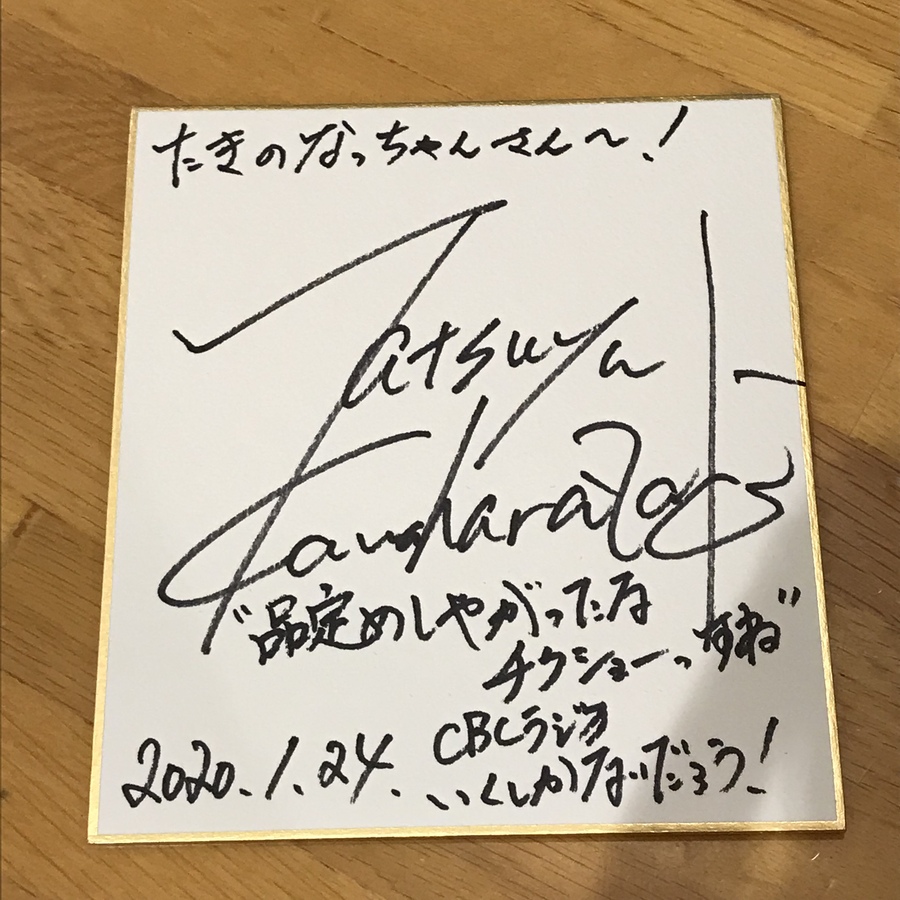 たきのなっちゃんさん〜!
Tatsuya
Kawahara
"品定めしやがったな
チクショーっすね"
2020.1.24. CBCラジオ
いくしかないだろう!